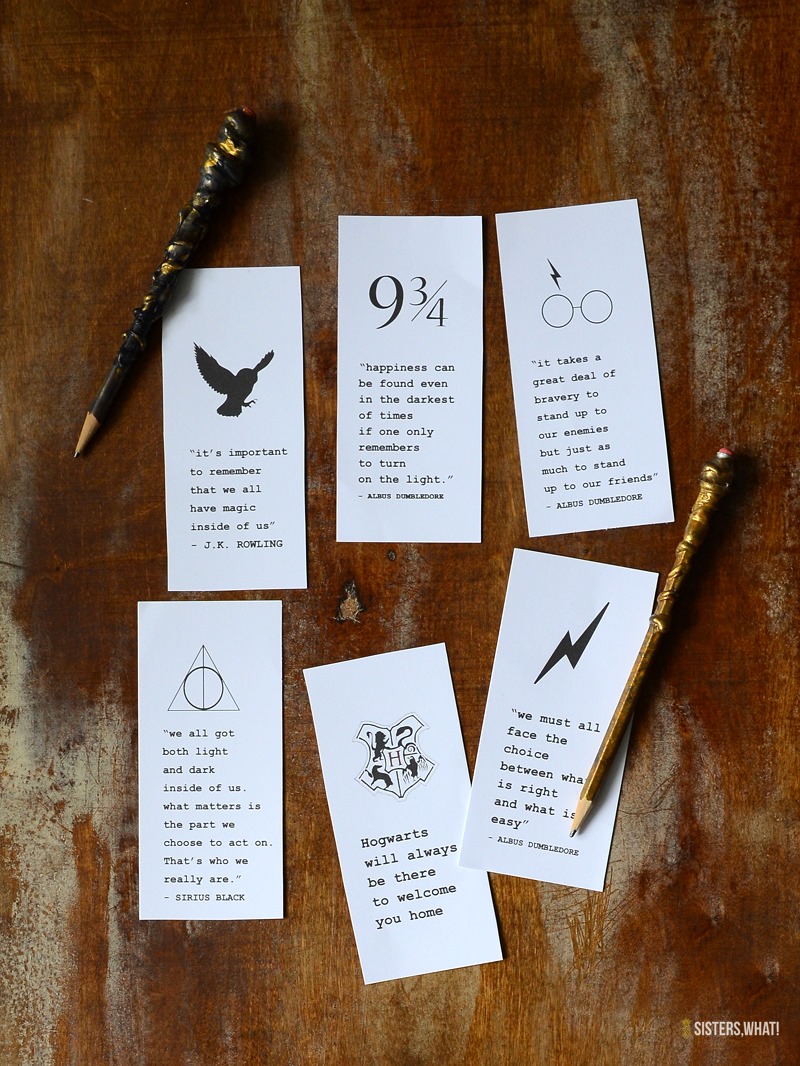 "it's important
to remember
that we all
have magic
inside of us"
- J.K. ROWLING
9¾
"happiness can
be found even
in the darkest
of times
if one only
remembers
to turn
on the light."
- ALBUS DUMBLEDORE
"it takes a
great deal of
bravery to
stand up to
our enemies
but just as
much to stand
up to our friends"
- ALBUS DUMBLEDORE
"we all got
both light
and dark
inside of us.
what matters is
the part we
choose to act on.
That's who we
really are."
- SIRIUS BLACK
H
Hogwarts
will always
be there
to welcome
you home
"we must all
face the
choice
between what
is right
and what is
easy"
- ALBUS DUMBLEDORE
SISTERS,WHAT!